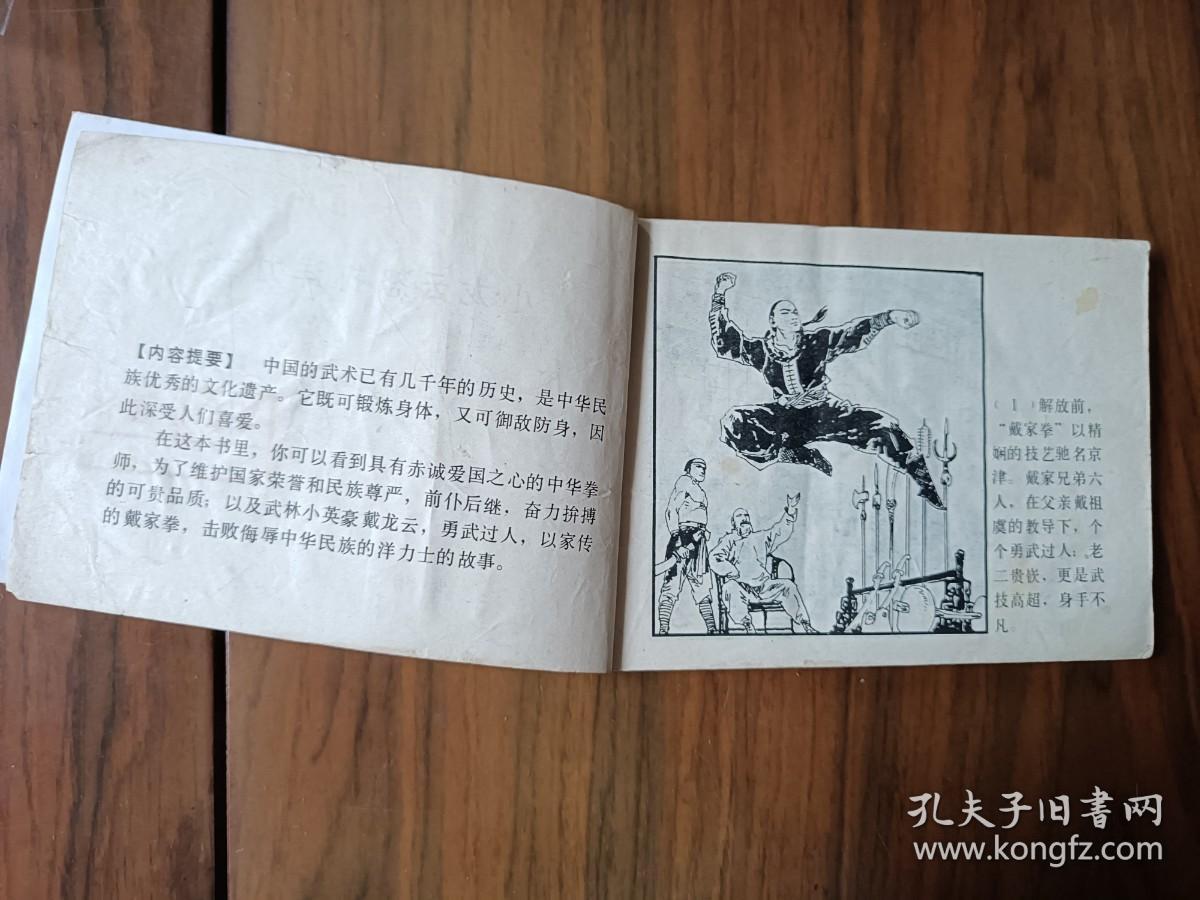 【内容提要】 中国的武术已有几千年的历史，是中华民
族优秀的文化遗产。它既可锻炼身体，又可御敌防身，因
此深受人们喜爱。
在这本书里，你可以看到具有赤诚爱国之心的中华拳
师，为了维护国家荣誉和民族尊严，前仆后继，奋力拚搏
的可贵品质；以及武林小英豪戴龙云，勇武过人，以家传
的戴家拳，击败侮辱中华民族的洋力士的故事。
（1）解放前，
“戴家拳”以精
娴的技艺驰名京
津。戴家兄弟六
人，在父亲戴祖
虞的教导下，个
个勇武过人；老
二贵嵌，更是武
技高超，身手不
凡。
孔夫子旧書网
www.kongfz.com